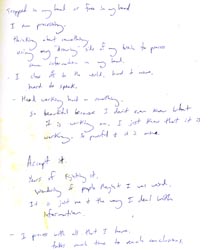 Trapped in my head or free in my head
I am processing.
Thinking about something
using my "drawing" side of my brain to process
some information in my head.
- I close off to the world. hard to move,
hard to speak.
- Mind working hard on something.
So beautiful because I don't even know what
it is working on. I just know that it is
working. So peaceful & it is mine.
Accept it.
Years of fighting it.
Wondering if people thought I was weird.
It is just me & the way I deal with
information.
- I process with all that I have.
takes much time to reach conclusions.